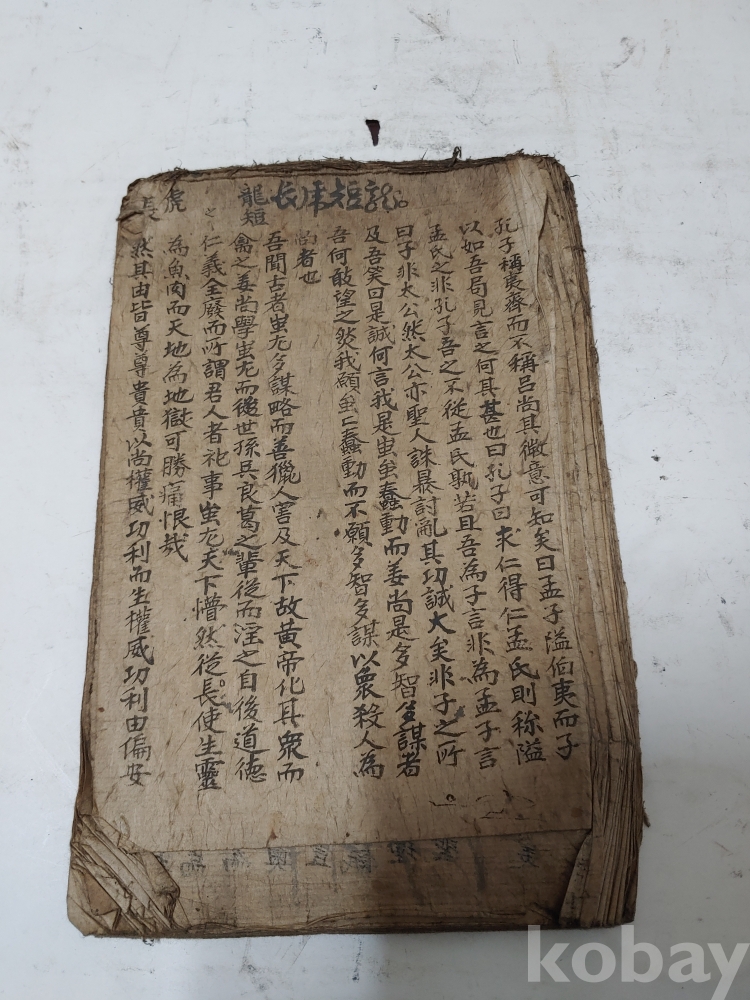 長虎短龍
龍短
虎
長
孔子稱夷齊而不稱呂尚其微意可知矣曰孟子隘伯夷而子
以如吾局見言之何其甚也曰孔子曰求仁得仁孟氏則称隘
孟氏之非孔子吾之不從孟氏孰若且吾為子言非為孟子言
曰子非太公然太公亦聖人誅暴討亂其功誠大矣非子之所
及吾笑曰是誠何言我是蚩蚩蠢動而姜尚是多智多謀者
吾何敢望之然我願蚩〻蠢動而不願多智多謀以衆殺人為
尚者也
吾聞古者蚩尤多謀略而善獵人害及天下故黃帝化其衆而
禽之姜尚學蚩尤而後世孫吳良葛之輩從而淫之自後道德
仁義全廢而所謂君人者祀事蚩尤天下懵然從長使生靈
為魚肉而天地為地獄可勝痛恨哉
然其由皆尊尊貴貴以尚權威功利而生權威功利由偏安
kobay